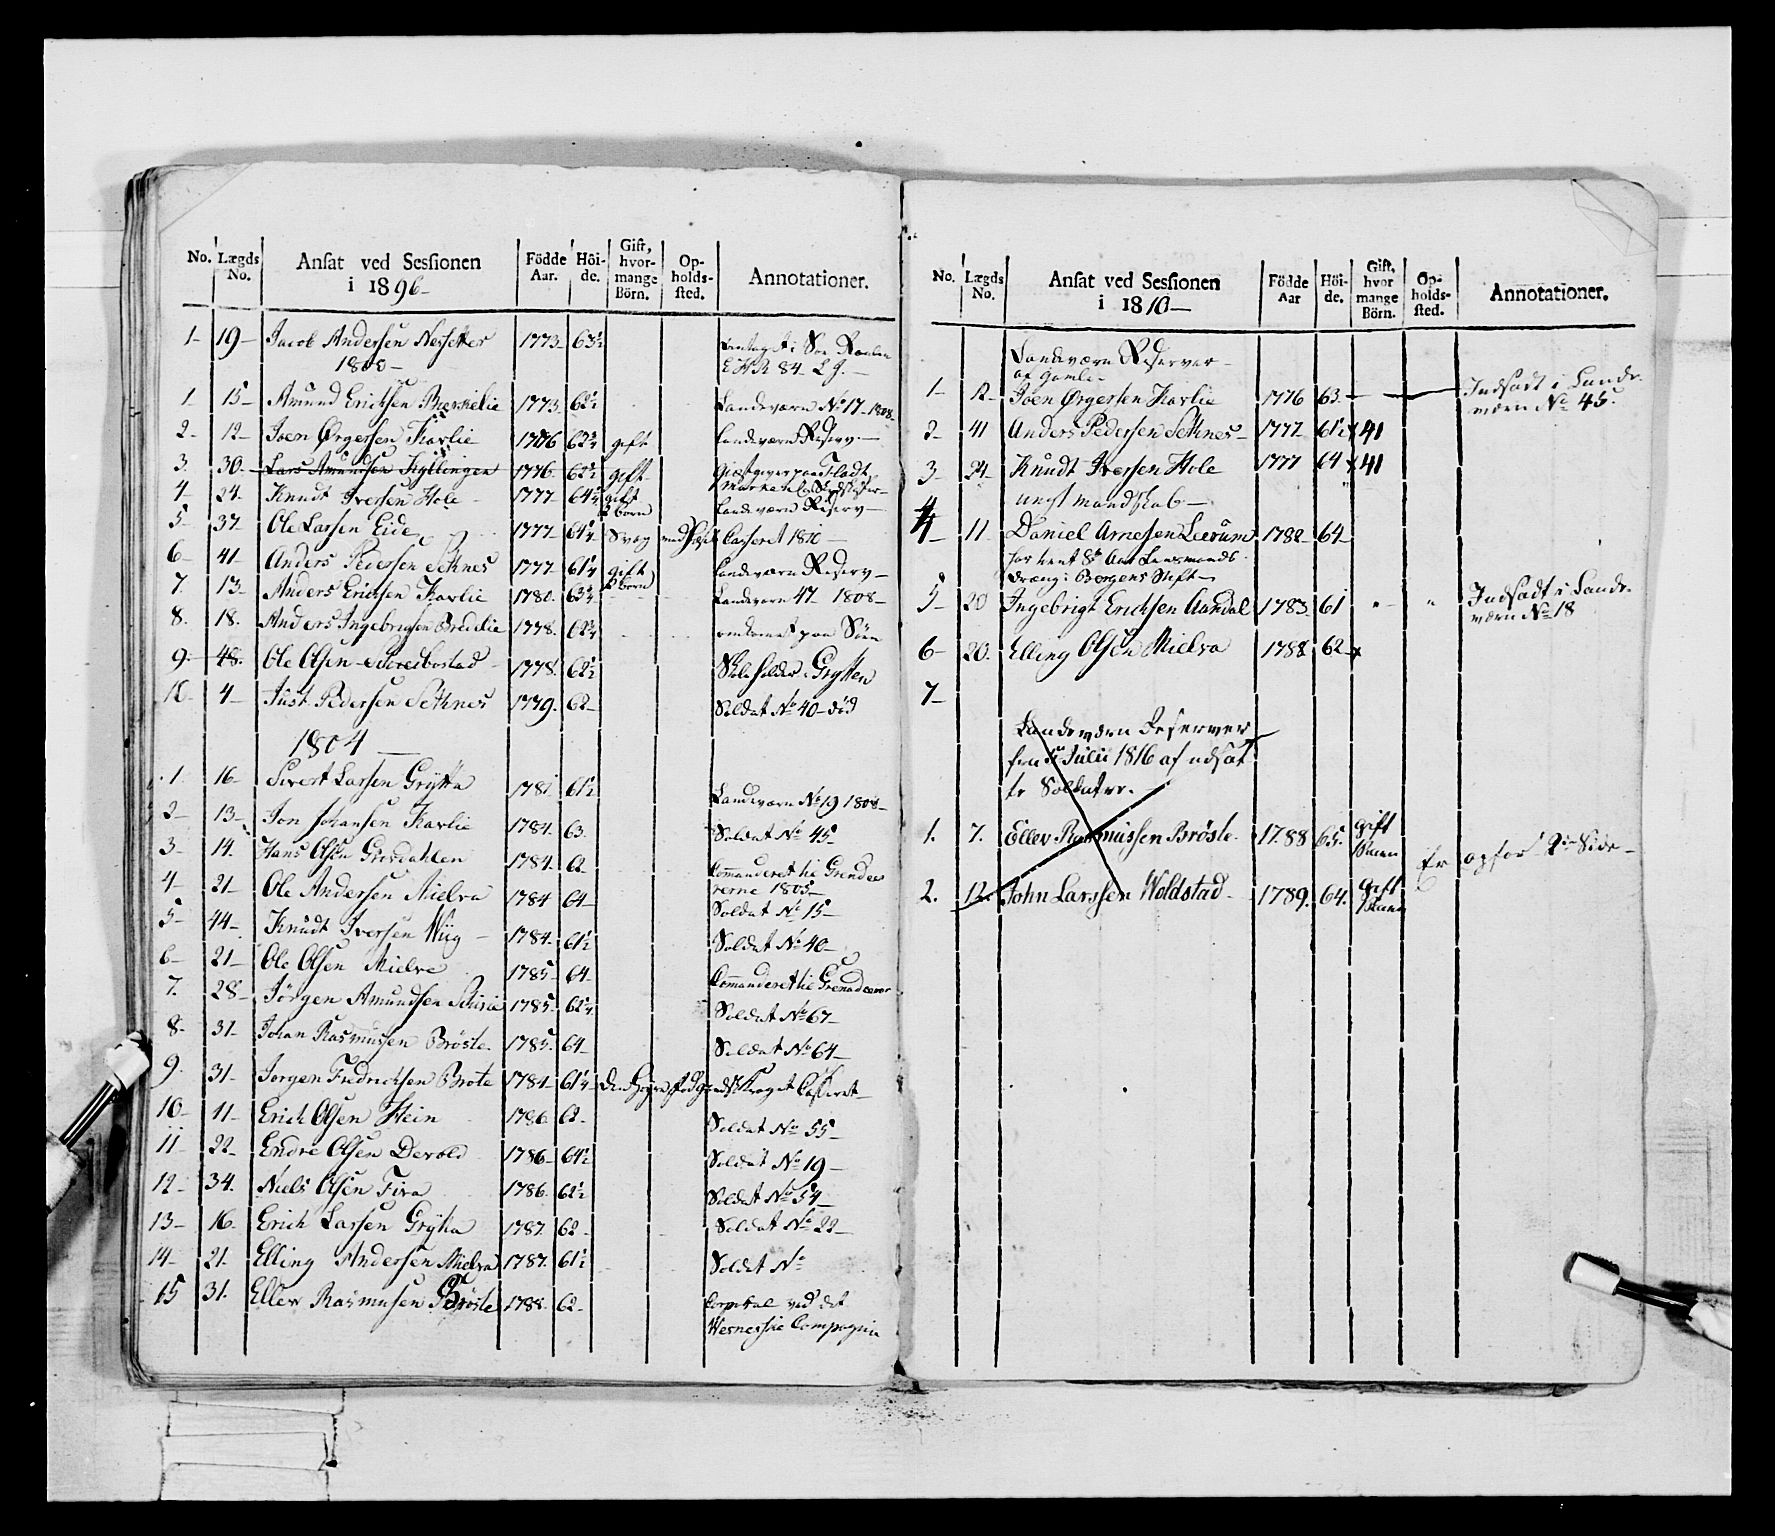 No. Lægds No. Ansat ved Sessionen i 1896- Födde Aar. Höi- de. Gift, hvor- mange Börn. Op- holds- sted. Annotationer.
1- 19- Jacob Andersen 1773- 63½
1800-
1 15- Amund Erichsen 1773. 62½ Landeværn No 17-1808-
2- 12- Joen Ørgersen Karlie 1776 62¾ gift Landeværn Reserv-
3. 30- Lars Amundsen Kyllingen 1776. 62½ gift
4- 24. Knudt Iversen Hole 1777 64¾ gift 2 born Landeværn Reserv-
5- 37 Ole Larsen Eide 1777- 61¼ Svag Casseret 1810-
6- 41- Anders Pedersen Sethnes 1777- 61¼ gift 2 born Landeværn Reserv-
7. 13- Anders Erichsen Karlie 1780. 63¾ Landværn 47- 1808-
8. 18. Anders Ingebrigsen Bredelie 1778. 62¾
9- 48. Ole Olsen 1778. 62½ Grytten
10- 4- Just Pedersen Sethnes 1779. 62- Soldat No 40- död
1804-
1. 16- Sivert Larsen Grytta 1781. 61½ Landeværn No 19 1808-
2- 13- Jon Johansen Karlie 1784. 63. Soldat No 45-
3- 14. Hans Olsen Grovdahlen 1784. 62 Commanderet til Grendee
rerne 1805-
4- 21- Ole Andersen Mielva 1784 64- Soldat No 15-
5- 44- Knudt Iversen Wiig- 1784. 61½ Soldat No 40-
6- 21- Ole Olsen Mielve 1785- 64- Commanderet til Grenadeerer
7. 28- Jörgen Amundsen 1785. 62¾ Soldat No 67-
8- 31- Johan Rasmussen Bröste- 1785. 64- Soldat No 64-
9. 31- Jorgen Fredrichsen Brote 1784- 61¼ Casseret-
10- 11- Erich Olsen Hein 1786. 62- Soldat No 55-
11 22- Endre Olsen Devold 1786- 64½ Soldat No 19-
12- 34. Niels Olsen Tiva 1786. 62½ Soldat No 54-
13- 16. Erich Larsen Grytta 1787. 62- Soldat No 22-
14- 21. Elling Andersen Mielva 1787. 61½ Soldat No
15 31. Ellev Rasmusen Bröste 1788. 62- Corpural ved det
Wernesske Compagnie
No. Lægds No. Ansat ved Sessionen i 1810- Födde Aar Höi- de. Gift, hvor mange Börn. Op- holds- sted. Annotationer.
Landeværn Reserver-
af Gamle-
1- 12- Joen Ørgersen Karlie 1776 63- Indsadt i Lande-
værn No 45.
2- 41 Anders Pedersen Sethnes- 1777 61½ x41
3- 24. Knudt Iversen Hole 1777 64 x41
ungt mandskab-
4- 11- Daniel Arnesen Leerum 1782- 64-
Lensmands
dreng i Bergens Stift-
5- 20 Ingebrigt Erichsen Aandal 1783. 61 Indsadt i Lande-
værn No 18
6- 20. Elling Olsen Mielva 1788 62- x
7-
Landeværn Reserver
fra Julii 1816 af udsat
te Soldater.
1. 7. Ellev Rasmussen Bröste- 1788 65. gift Er opför 2 Side-
2. 12. John Larssen Woldstad- 1789. 64. Gift